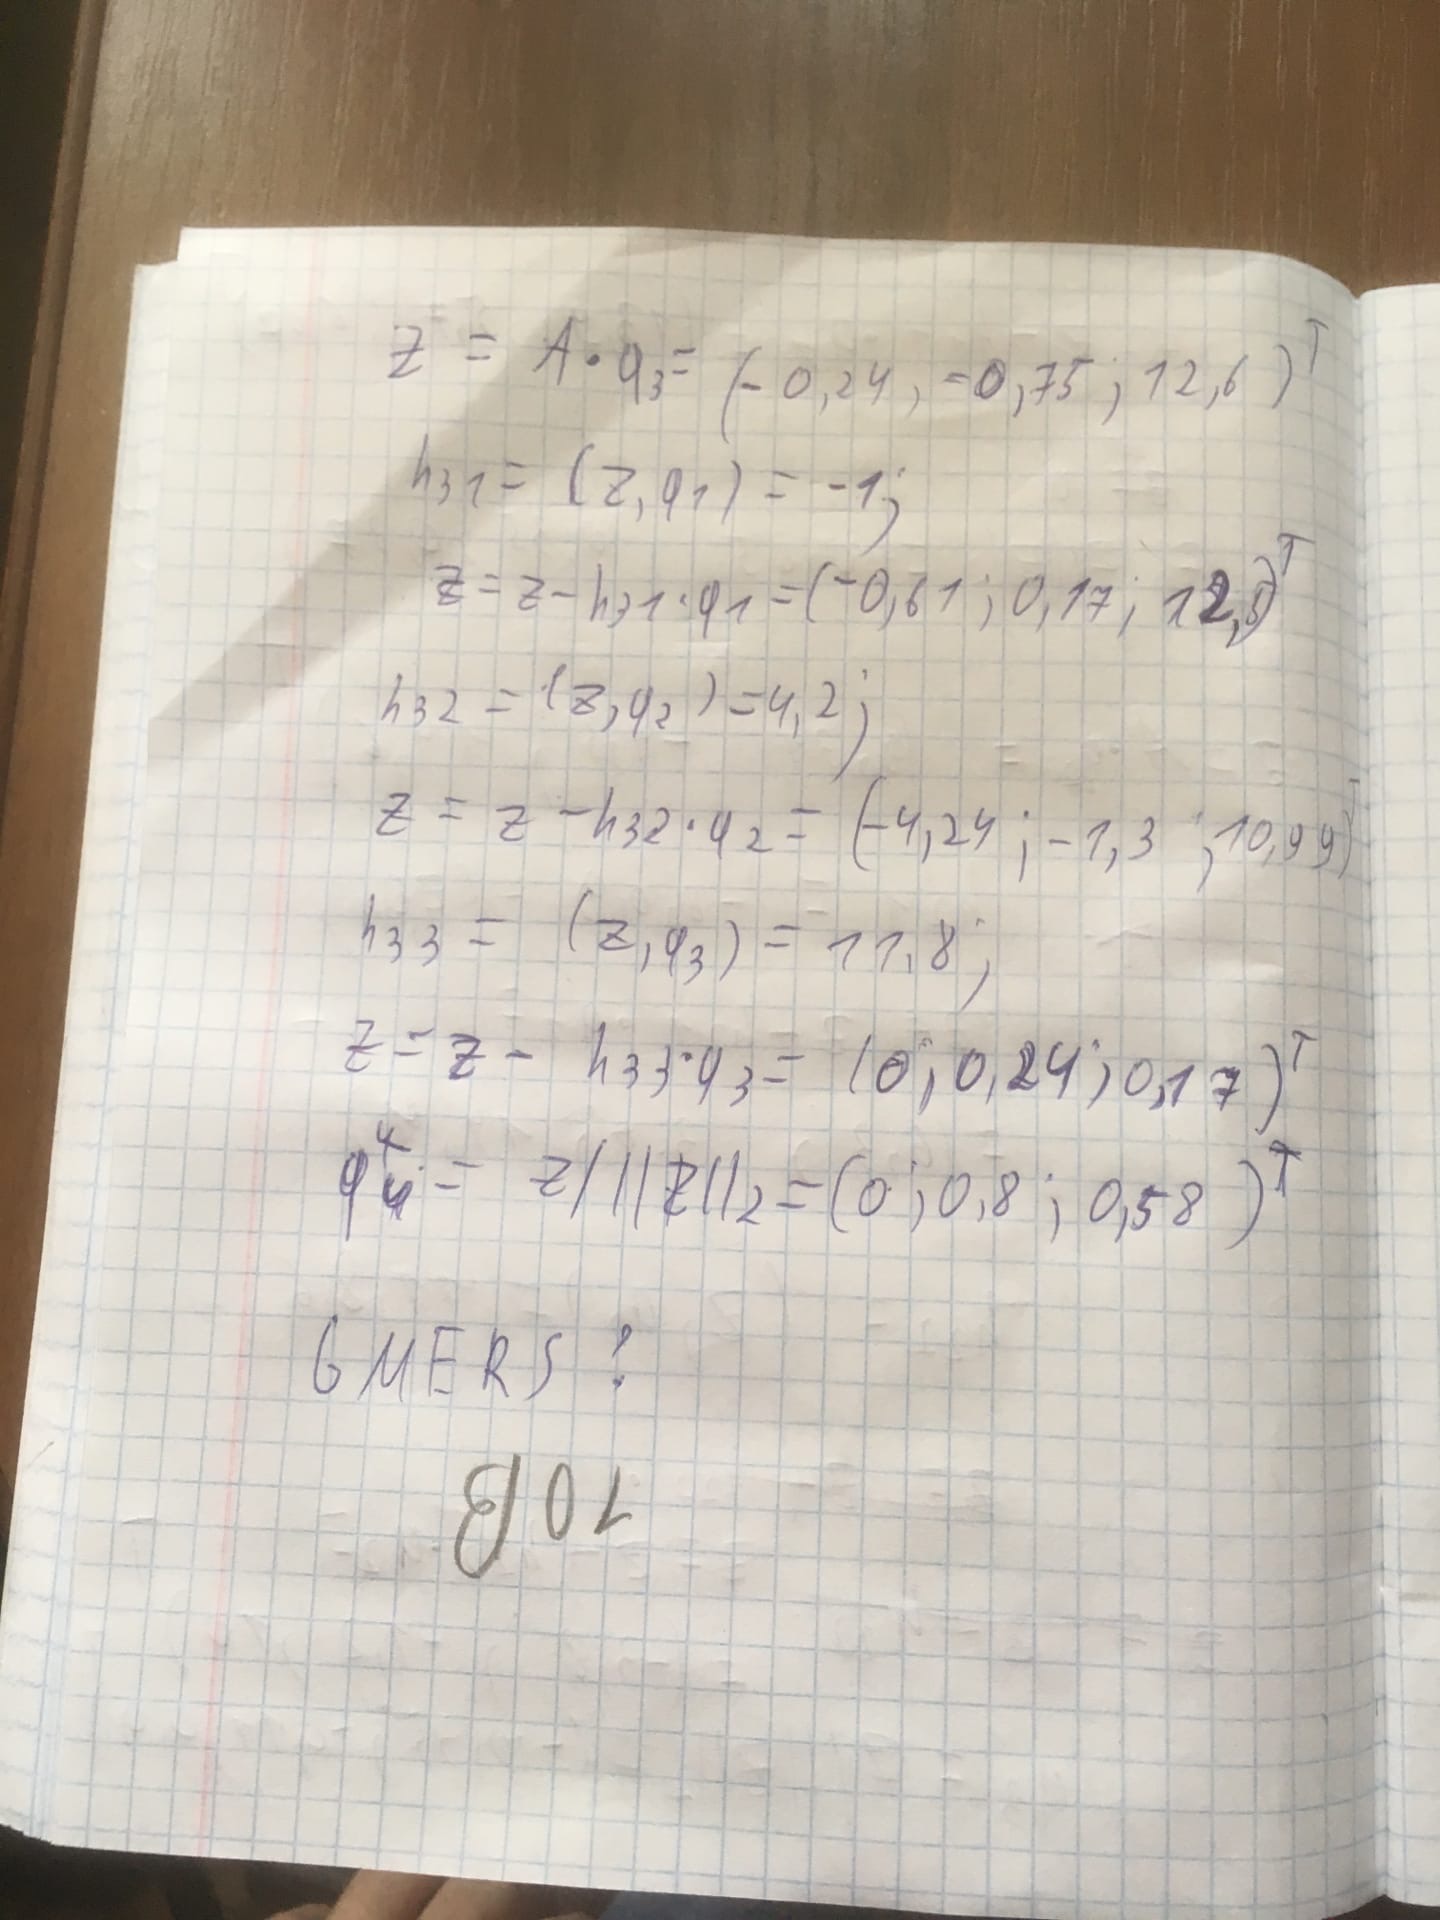 z = A·q₃ = (-0,24; -0,75; 12,6)ᵀ
h₃₁ = (z, q₁) = -1;
z = z - h₃₁·q₁ = (-0,61; 0,17; 12,5)ᵀ
h₃₂ = (z, q₂) = 4,2;
z = z - h₃₂·q₂ = (-4,24; -1,3; 10,99)ᵀ
h₃₃ = (z, q₃) = 11,8;
z = z - h₃₃·q₃ = (0; 0,24; 0,17)ᵀ
q₄ = z/||z||₂ = (0; 0,8; 0,58)ᵀ
GMERS?